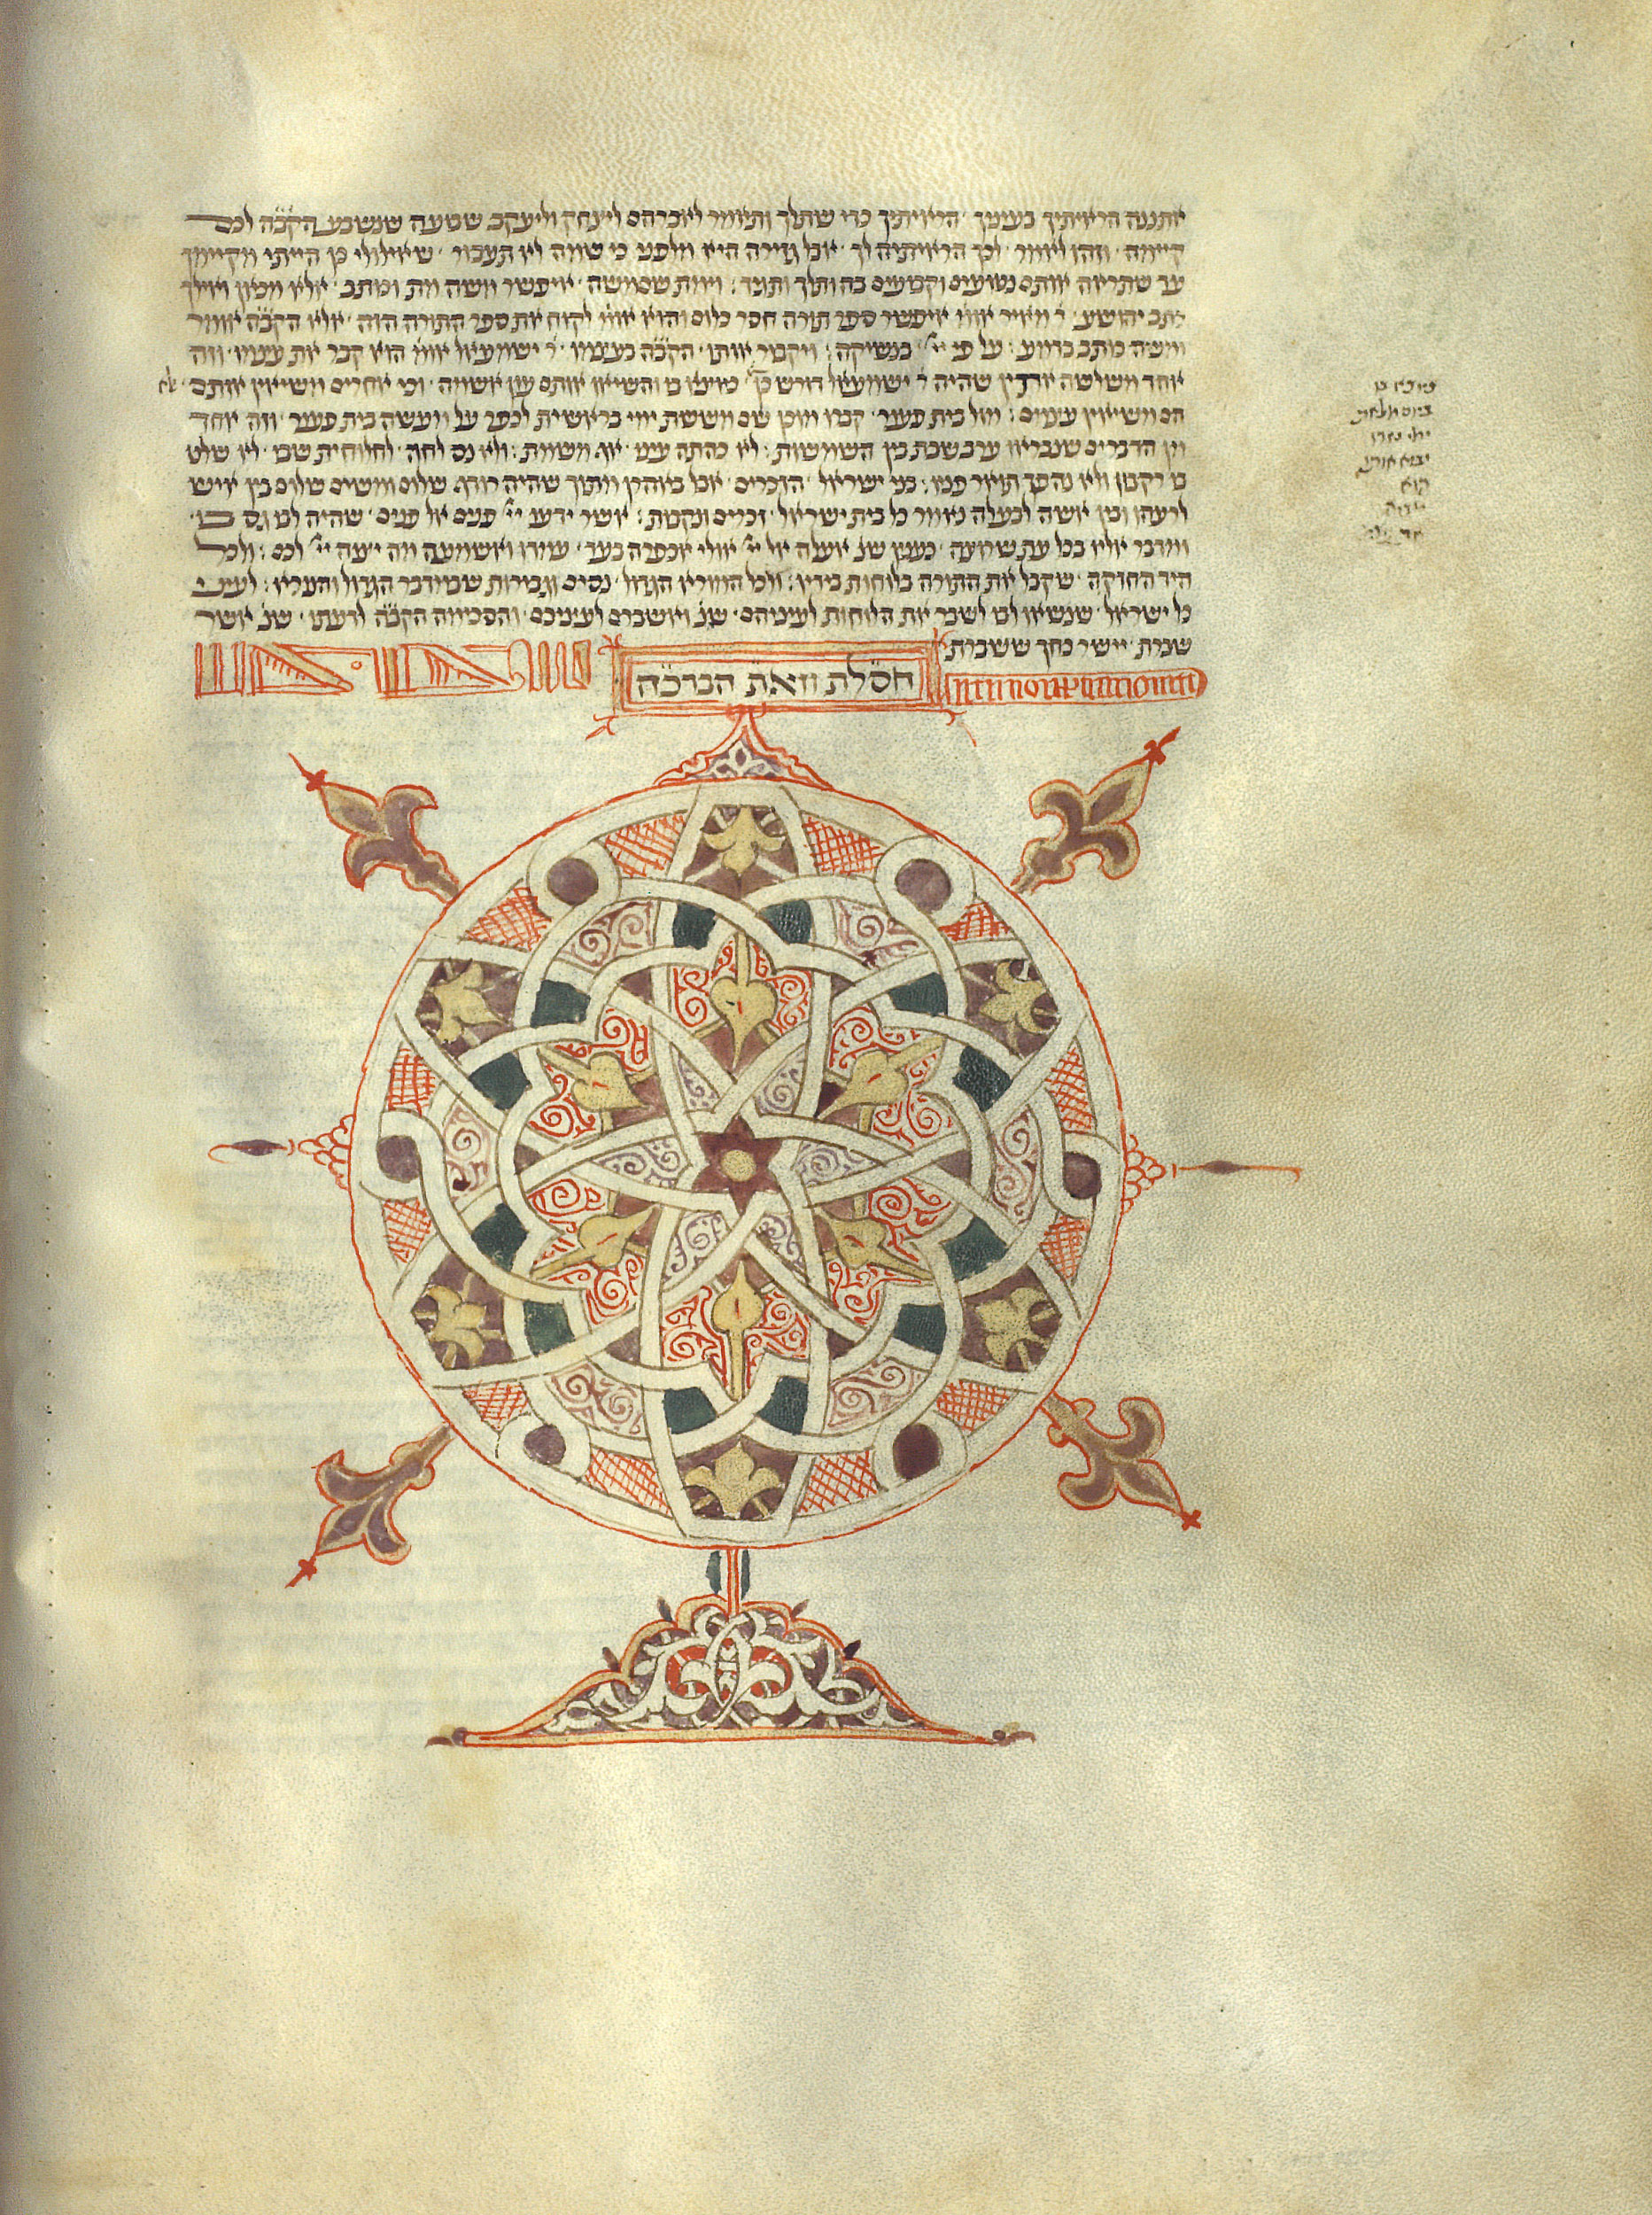 אתננה הראיתיך בעיניך · הראיתיך כדי שתלך ותאמר לאברהם ליצחק וליעקב שבועה שנשבע הקב̈ה לכם
קיימה · וזהו לאמר · לכך הראיתיה לך · אבל גזירה היא מלפני כי שמה לא תעבור · שאילולי כן הייתי מקיימך
עד שתראה אותם נטועים וקבועים בה ותלך ותגיד : וימת שם משה · איפשר משה מת וכותב · אלא מכאן ואילך
כתב יהושע · ר׳ מאיר אומ׳ איפשר ספר תורה חסר כלום והוא אומ׳ לקוח את ספר התורה הזה · אלא הקב̈ה אומר
ומשה כותב בדמע : על פי יי׳ בנשיקה : ויקבור אותו · הקב̈ה בעצמו · ר׳ ישמעאל אומ׳ הוא קבר את עצמו · וזה
אחד משלשה אתין שהיה ר׳ ישמעאל דורש כן · כיוצא בו והשיאו אותם עון אשמה · וכי אחרים משיאין אותם · אלא
הם משיאין עצמם : מול בית פעור · קברו מוכן שם מששת ימי בראשית לכפר על מעשה בית פעור · וזה אחד
מן הדברים שנבראו ערב שבת בין השמשות : לא כהתה עינו · אף משמת : ולא נס לחה · לחלוחית שבו · לא שלט
בו רקבון ולא נהפך תואר פניו : בני ישראל · הזכרים · אבל באהרן מתוך שהיה רודף שלום ומשים שלום בין איש
לרעהו ובין אשה לבעלה נאמר כל בית ישראל · זכרים ונקבות : אשר ידעו יי׳ פנים אל פנים · שהיה לבו גס בו ·
ומדבר אליו בכל עת שירצה · כענין שנ׳ אעלה אל יי׳ אולי אכפרה בעד · עמדו ואשמעה מה יצוה יי׳ לכם : ולכל
היד החזקה · שקבל את התורה בלוחות בידיו : ולכל המורא הגדול · נסים וגבורות שבמדבר הגדול והנורא : לעיני
כל ישראל · שנשאו לבו לשבר את הלוחות לעיניהם · שנ׳ ואשברם לעיניכם · והסכימה הקב̈ה לדעתו · שנ׳ אשר
שברת · יישר כחך ששברת
חסלת וזאת הברכה